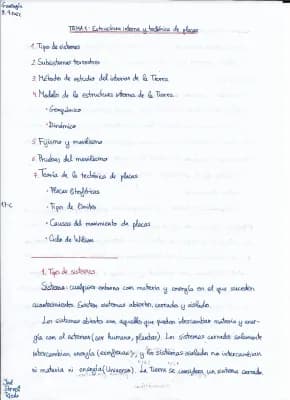 Geología
TEMA 1: Estructura interna y tectónica de placas
1. Tipo de sistemas
2. Subsistemas terrestres
3. Métodos de estudio del interior de la Tierra
4. Modelos de la estructura interna de la Tierra
· Geoquímico
· Dinámico
5. Fijismo y movilismo
6. Pruebas del movilismo
7. Teoría de la tectónica de placas
· Placas litosféricas
· Tipo de límites
· Causas del movimiento de placas
· Ciclo de Wilson
1. Tipo de sistemas
Sistema: cualquier entorno con materia y energía en el que suceden
acontecimientos. Existen sistemas abiertos, cerrados y aislados.
Los sistemas abiertos son aquellos que pueden intercambiar materia y ener-
gía con el externo (ser humano, plantas). Los sistemas cerrados solamente
intercambian energía, y los sistemas aislados no intercambian
ni materia ni energía (Universo). La Tierra se considera un sistema cerrado,